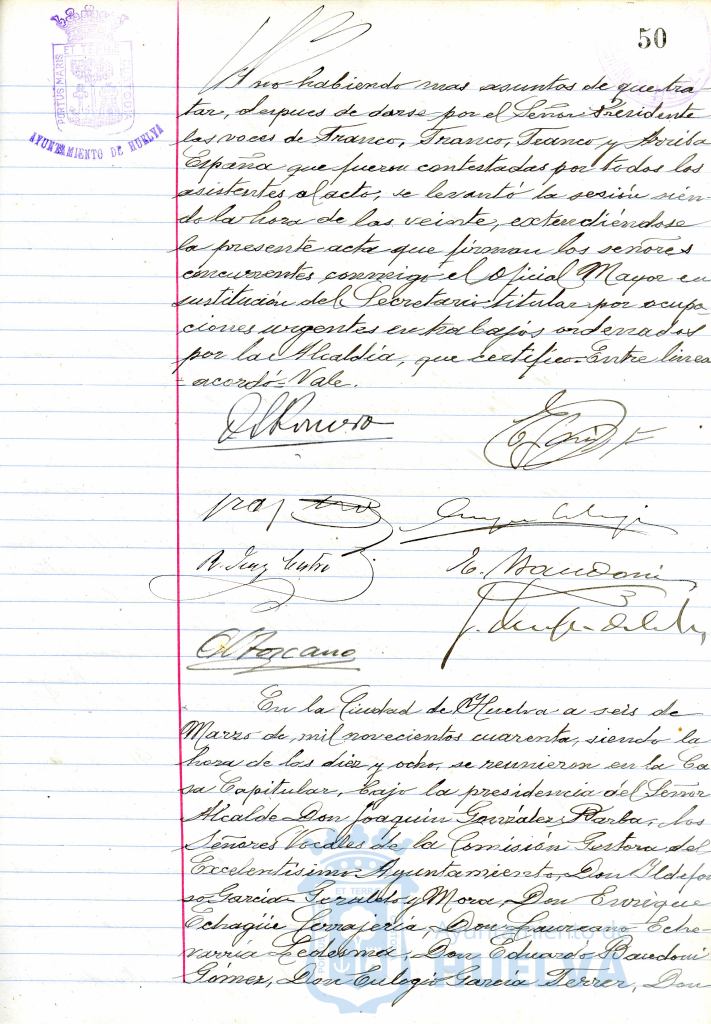 50
PORTUS MARIS ET TERRAE CUSTODIA
AYUNTAMIENTO DE HUELVA
Y no habiendo mas asuntos de que tra-
tar, despues de darse por el Señor Presidente
las voces de Franco, Franco, Franco, y Arriba
España que fueron contestadas por todos los
asistentes al acto, se levantó la sesión sien-
do la hora de las veinte, extendiéndose
la presente acta que firman los señores
concurrentes conmigo el Oficial Mayor en
sustitución del Secretario titular por ocupa-
ciones urgentes en trabajos ordenados
por la Alcaldía, que certifico=Entre linea
=acordó=Vale.
E. Bandoni
En la Ciudad de Huelva a seis de
Marzo de mil novecientos cuarenta, siendo la
hora de las diez y ocho, se reunieron en la Ca-
sa Capitular, bajo la presidencia del Señor
Alcalde Don Joaquín González Barba, los
Señores Vocales de la Comisión Gestora del
Excelentísimo Ayuntamiento, Don Ildefon-
so García Geraldo y Mora, Don Enrique
Echagüe Cerrajería, Don Laureano Eche-
varría Ledesma, Don Eduardo Bandoni
Gómez, Don Eulogio García Ferrer, Don
ET TERRAE
Ayuntamiento de
HUELVA